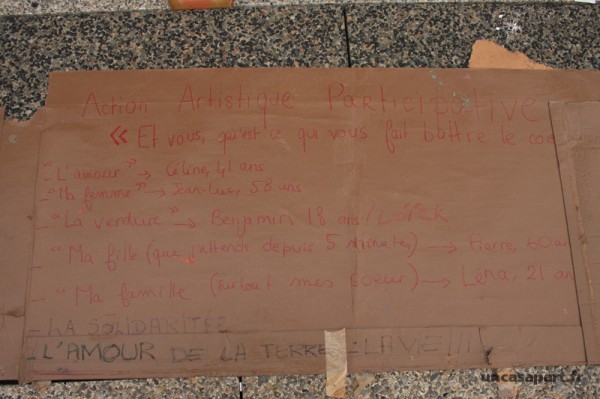 Action Artistique Participative
« Et vous, qu'est ce qui vous fait battre le coe
- "L'amour" → Céline, 41 ans
- "Ma femme" → Jean-Luc, 58 ans
- "La verdure" → Benjamin 18 ans /
- "Ma fille (que j'attends depuis 5 minutes) → Pierre, 60 an
- "Ma famille (surtout mes soeur) → Léna, 21 an
- LA SOLIDARITÉE
- L'AMOUR DE LA TERRE : LA VIE!!!
uncasapart.fr